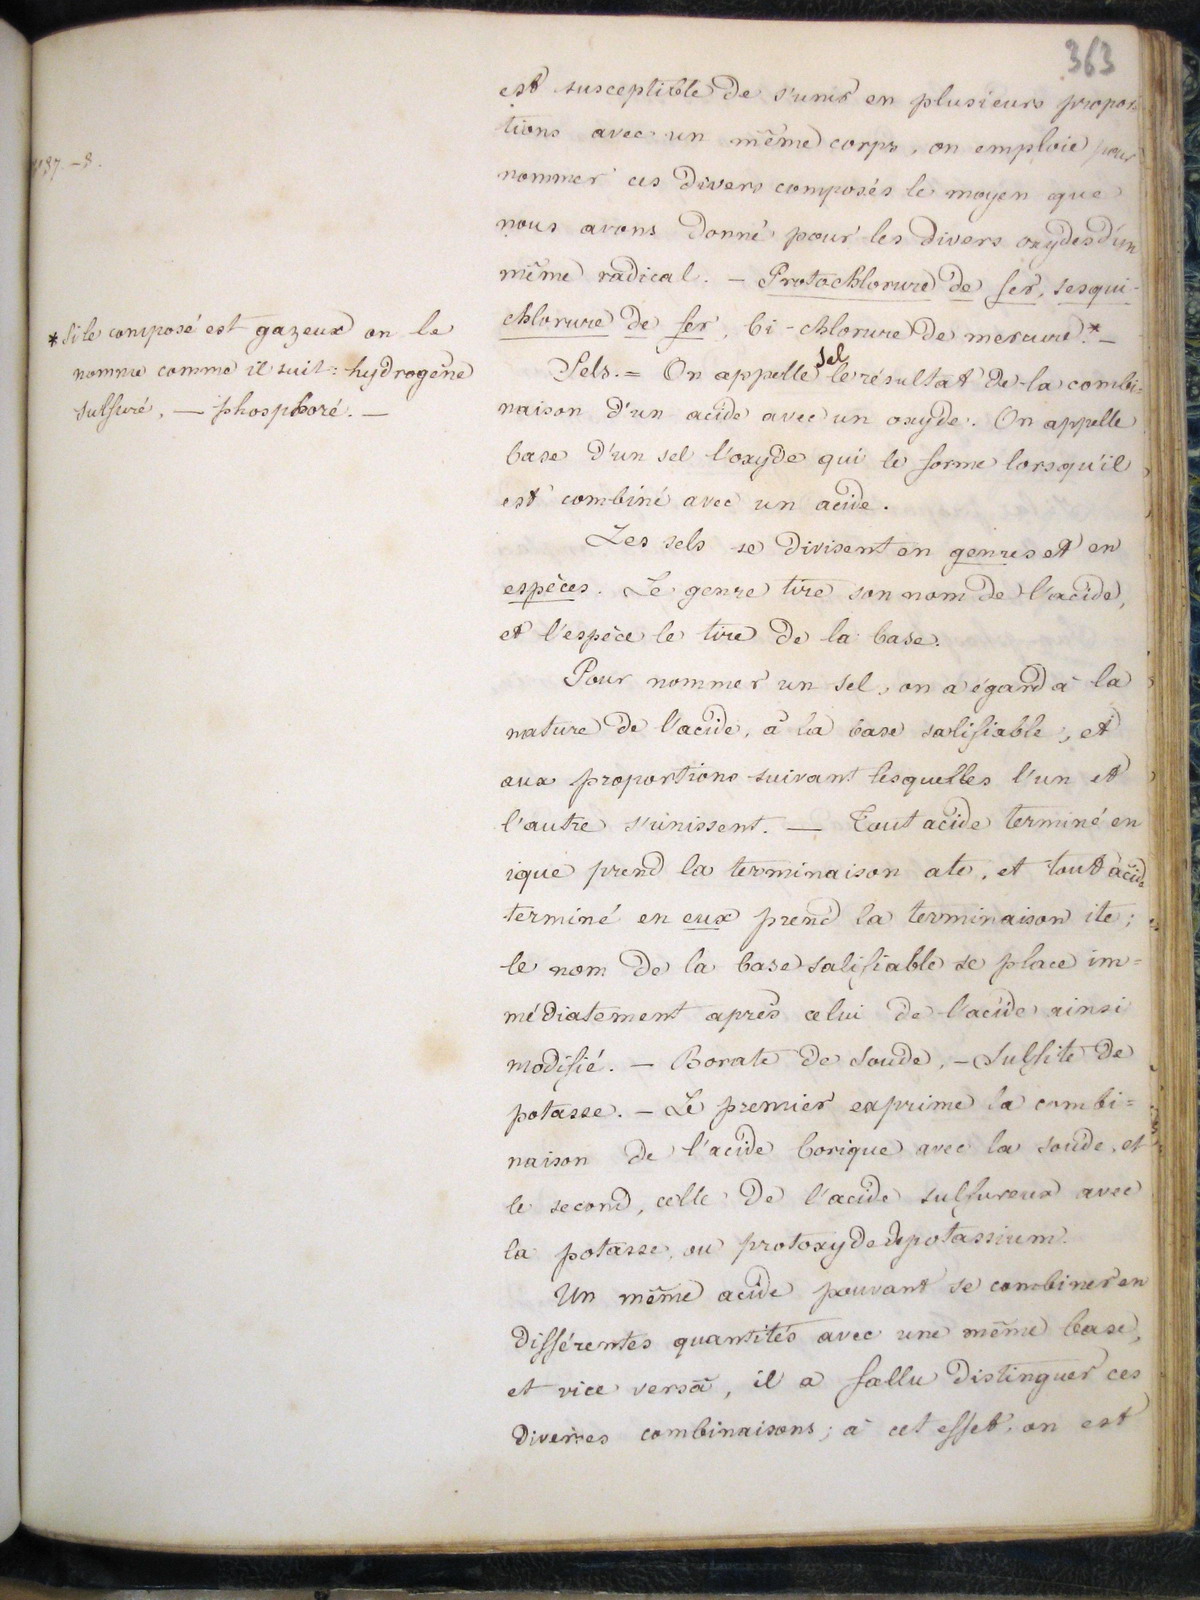 363
est susceptible de s'unir en plusieurs propor-
tions avec un même corps, on emploie pour
1837.-8.
nommer ces divers composés le moyen que
nous avons donné pour les divers oxydes d'un
même radical. - Protochlorure de fer, sesqui-
chlorure de fer, bi-chlorure de mercure.* -
* Si le composé est gazeux on le
nomme comme il suit: hydrogène
sulfuré, - phosphoré. -
Sels. = On appelle sel le résultat de la combi=
naison d'un acide avec un oxyde. On appelle
base d'un sel l'oxyde qui le forme lorsqu'il
est combiné avec un acide.
Les sels se divisent en genres et en
espèces. Le genre tire son nom de l'acide,
et l'espèce le tire de la base.
Pour nommer un sel, on a égard à la
nature de l'acide, à la base salifiable, et
aux proportions suivant lesquelles l'un et
l'autre s'unissent. - Tout acide terminé en
ique prend la terminaison ate, et tout acide
terminé en eux prend la terminaison ite;
le nom de la base salifiable se place im=
médiatement après celui de l'acide ainsi
modifié. - Borate de soude, - Sulfite de
potasse. - Le premier exprime la combi=
naison de l'acide borique avec la soude, et
le second, celle de l'acide sulfureux avec
la potasse, ou protoxyde de potassium.
Un même acide pouvant se combiner en
différentes quantités avec une même base,
et vice versâ, il a fallu distinguer ces
diverses combinaisons; à cet effet, on est